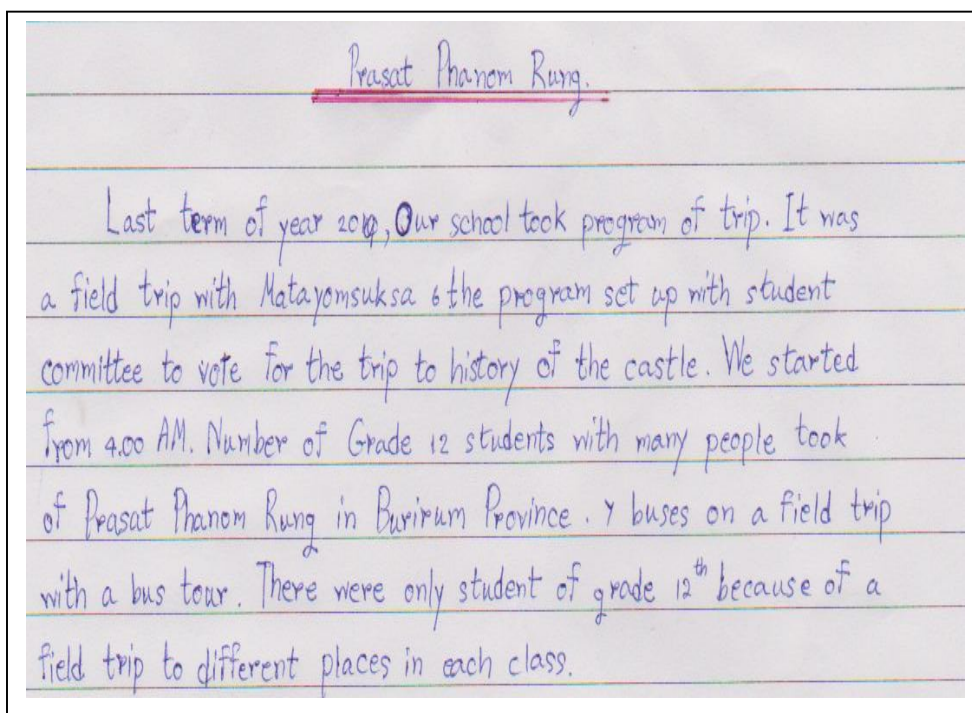 Prasat Phanom Rung.
Last term of year 2010, Our school took program of trip. It was
a field trip with Matayomsuksa 6 the program set up with student
committee to vote for the trip to history of the castle. We started
from 4.00 AM. Number of Grade 12 students with many people took
of Prasat Phanom Rung in Burirum Province. 7 buses on a field trip
with a bus tour. There were only student of grade 12th because of a
field trip to different places in each class.